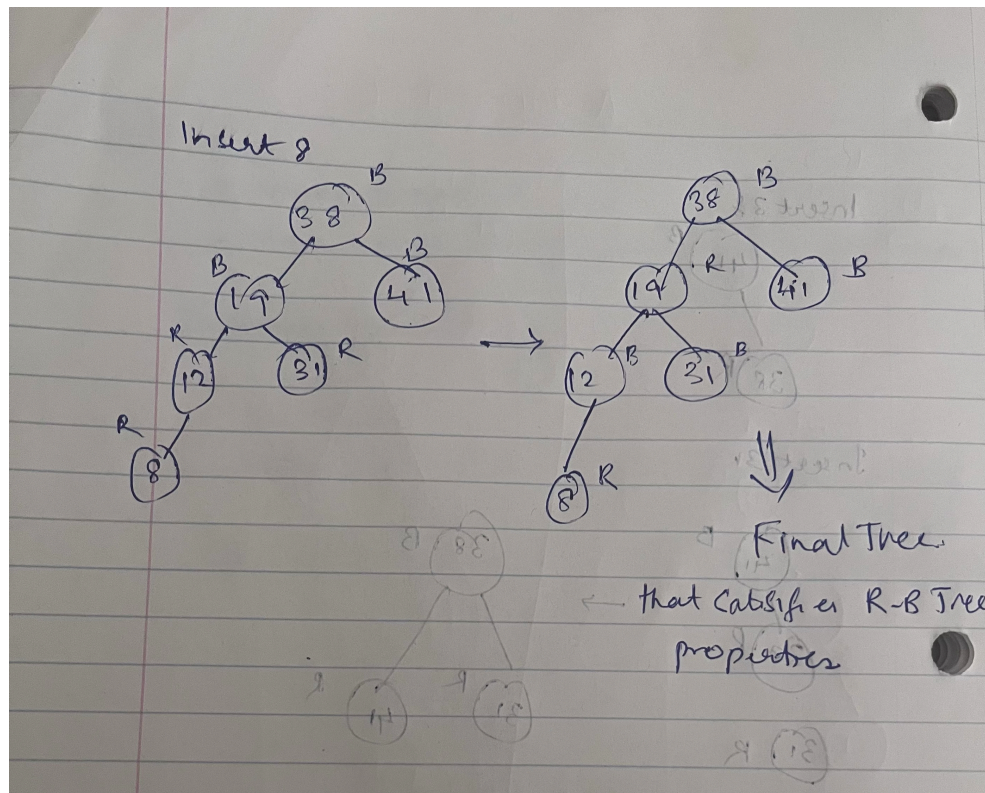 Insert 8
B
38
B
19
B
41
R
12
31
R
R
8
→
B
38
19
R
41
B
12
B
31
B
8
R
⇓
Final Tree.
← that Catisfies R-B Tree
properties